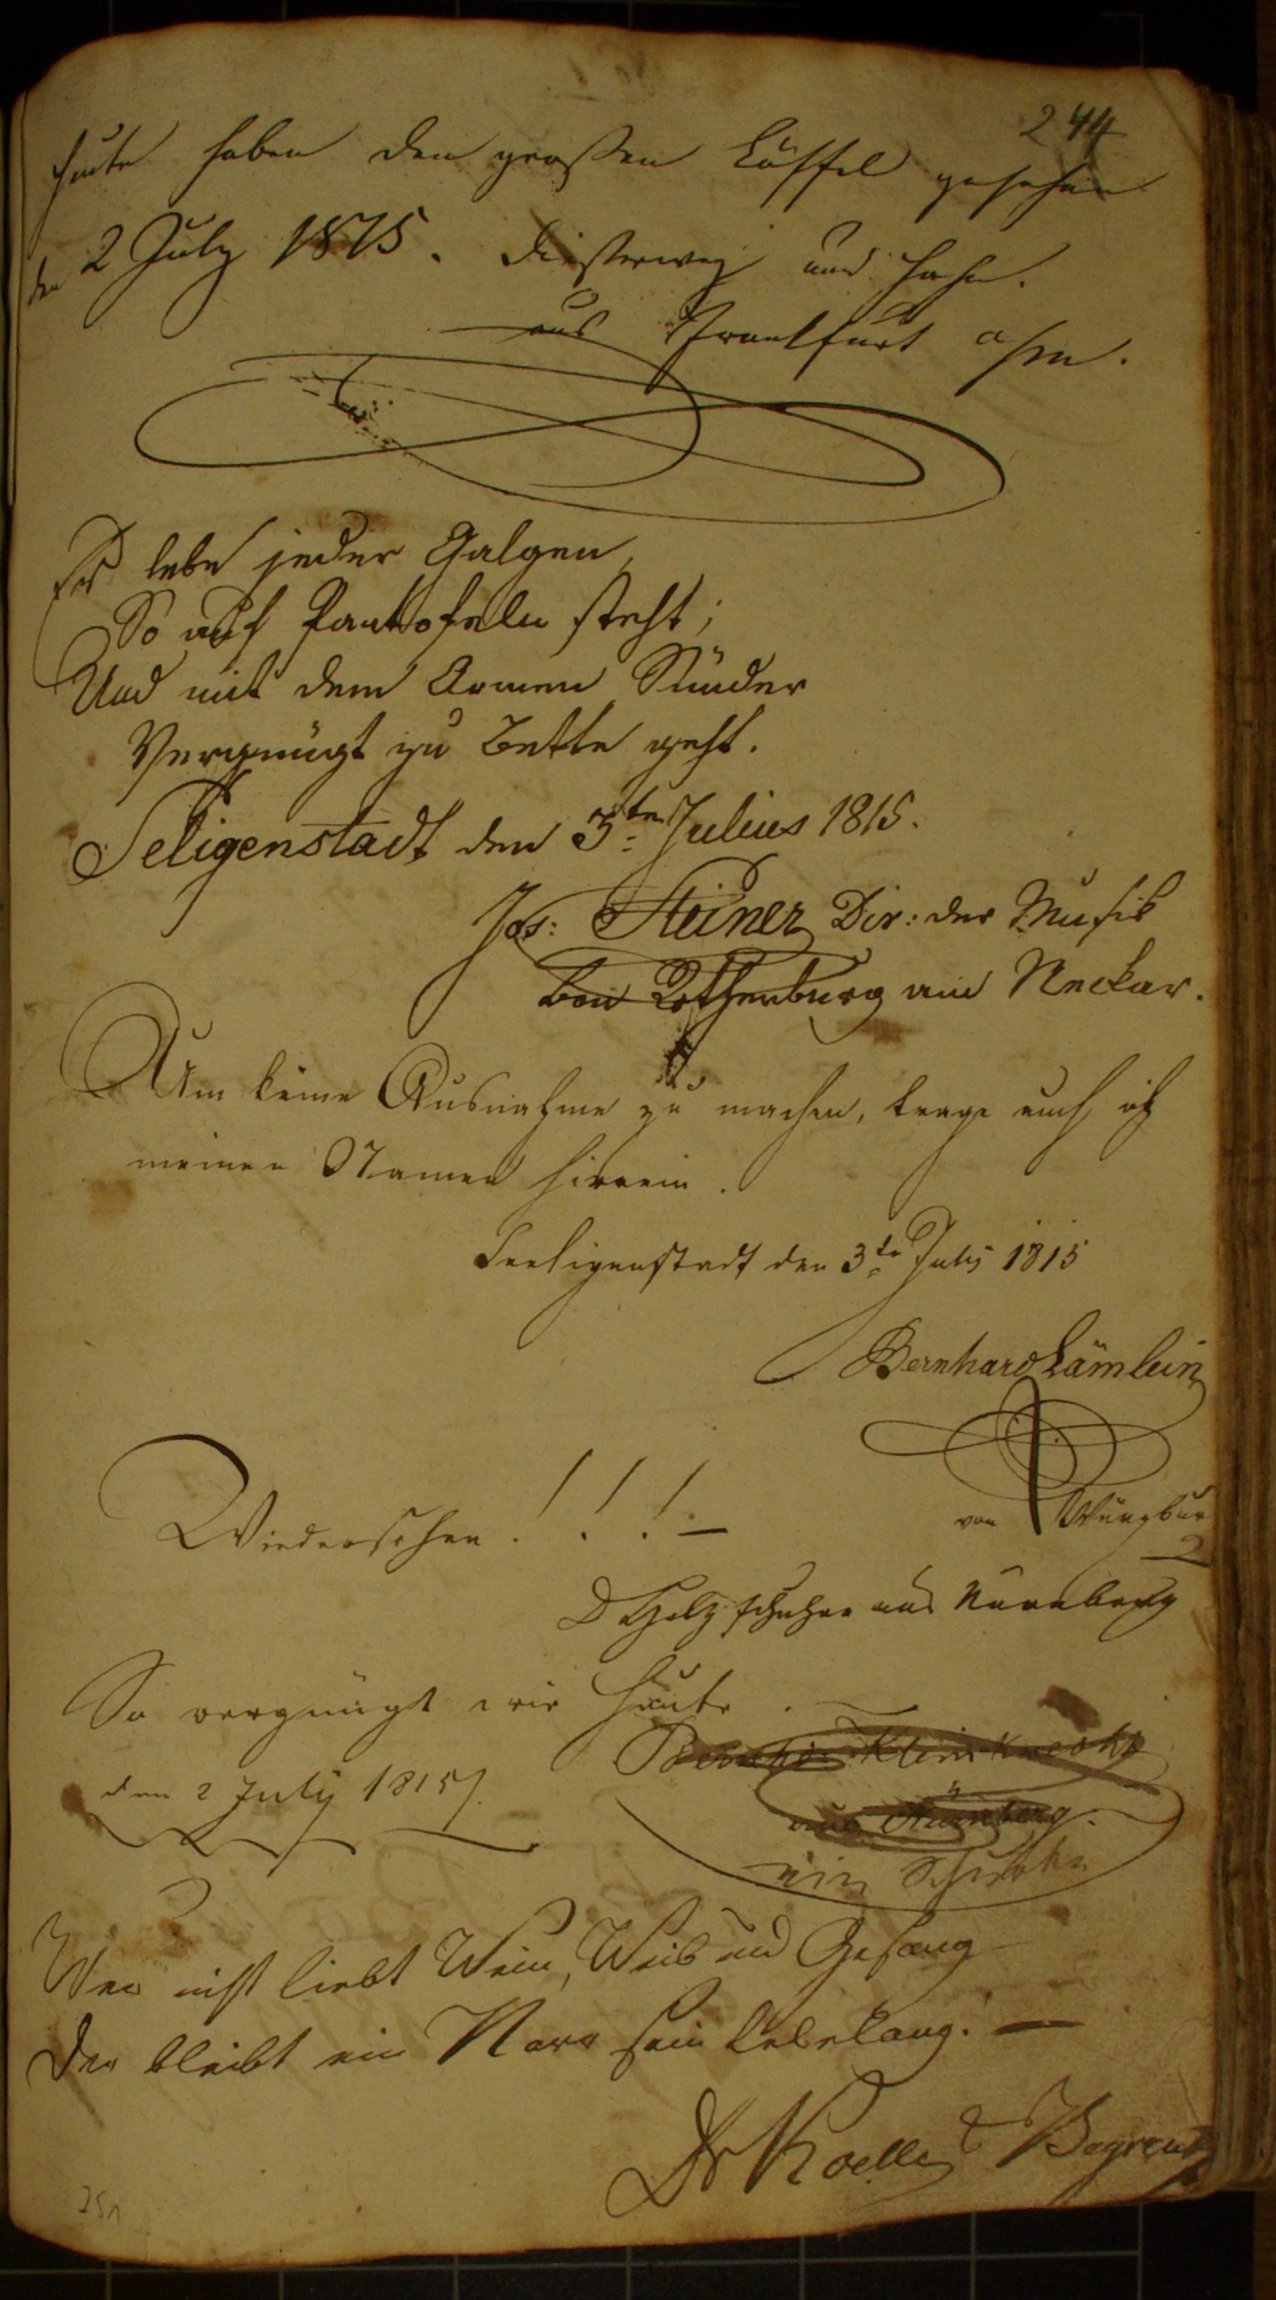 244
Heute haben den großen Löffel gesehen
den 2 July 1815. Diesterweg und Hahn.
aus Frankfurt a/m.
Es lebe jeder Galgen,
So auf Pantofeln steht;
Und mit dem Armen Sünder
Vergnügt zu Bette geht.
Seligenstadt den 3ten Julius 1815.
Jos: Steiner Dir: der Musik
von Rothenburg am Neckar.
Um keine Ausnahme zu machen, trage auch ich
meinen Namen hierein.
Seeligenstadt den 3te July 1815
Bernhard Lämlein
von Würzburg
Wiedersehen ! ! ! —
D Holzschuher aus Nürnberg
So vergnügt wie Heute.
Kleinknecht
den 2 July 1815.
aus Nürnberg.
ein
Wer nicht liebt Wein, Weib und Gesang
Der bleibt ein Narr sein Lebelang. —
Dr Koelle
251